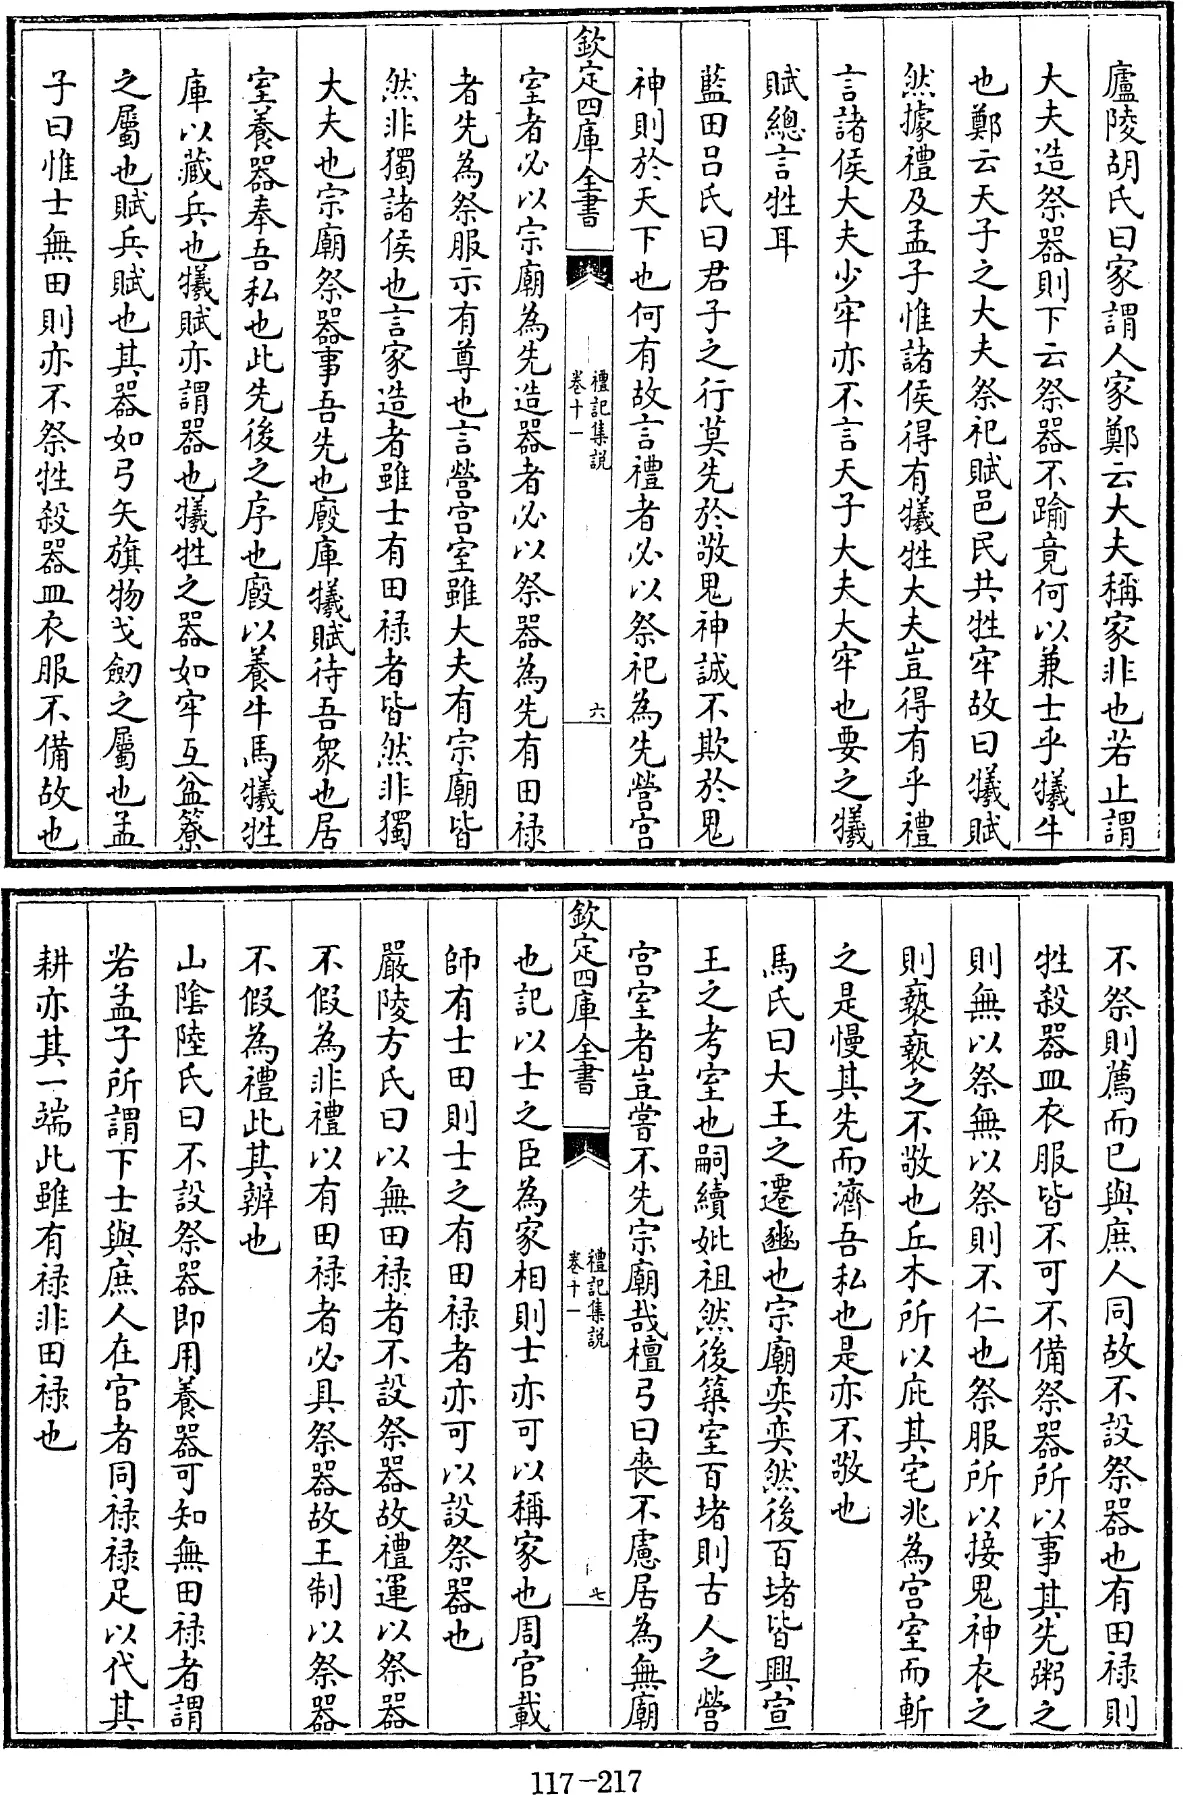 廬陵胡氏曰家謂人家鄭云大夫稱家非也若止謂
大夫造祭器則下云祭器不踰竟何以兼士乎犧牛
也鄭云天子之大夫祭祀賦邑民共牲牢故曰犧賦
然據禮及孟子惟諸侯得有犧牲大夫豈得有乎禮
言諸侯大夫少牢亦不言天子大夫大牢也要之犧
賦總言牲耳
藍田呂氏曰君子之行莫先於敬鬼神誠不欺於鬼
神則於天下也何有故言禮者必以祭祀為先營宫
欽定四庫全書
禮記集說
卷十一
六
室者必以宗廟為先造器者必以祭器為先有田禄
者先為祭服示有尊也言營宫室雖大夫有宗廟皆
然非獨諸侯也言家造者雖士有田禄者皆然非獨
大夫也宗廟祭器事吾先也廏庫犧賦待吾衆也居
室養器奉吾私也此先後之序也廏以養牛馬犧牲
庫以藏兵也犧賦亦謂器也犧牲之器如牢互盆簝
之屬也賦兵賦也其器如弓矢旗物戈劒之屬也孟
子曰惟士無田則亦不祭牲殺器皿衣服不備故也
不祭則薦而已與庶人同故不設祭器也有田禄則
牲殺器皿衣服皆不可不備祭器所以事其先粥之
則無以祭無以祭則不仁也祭服所以接鬼神衣之
則褻褻之不敬也丘木所以庇其宅兆為宫室而斬
之是慢其先而濟吾私也是亦不敬也
馬氏曰大王之遷豳也宗廟奕奕然後百堵皆興宣
王之考室也嗣續妣祖然後築室百堵則古人之營
宫室者豈嘗不先宗廟哉檀弓曰喪不慮居為無廟
欽定四庫全書
禮記集說
卷十一
七
也記以士之臣為家相則士亦可以稱家也周官載
師有士田則士之有田禄者亦可以設祭器也
嚴陵方氏曰以無田禄者不設祭器故禮運以祭器
不假為非禮以有田禄者必具祭器故王制以祭器
不假為禮此其辨也
山陰陸氏曰不設祭器即用養器可知無田禄者謂
若孟子所謂下士與庶人在官者同禄禄足以代其
耕亦其一端此雖有禄非田禄也
117-217